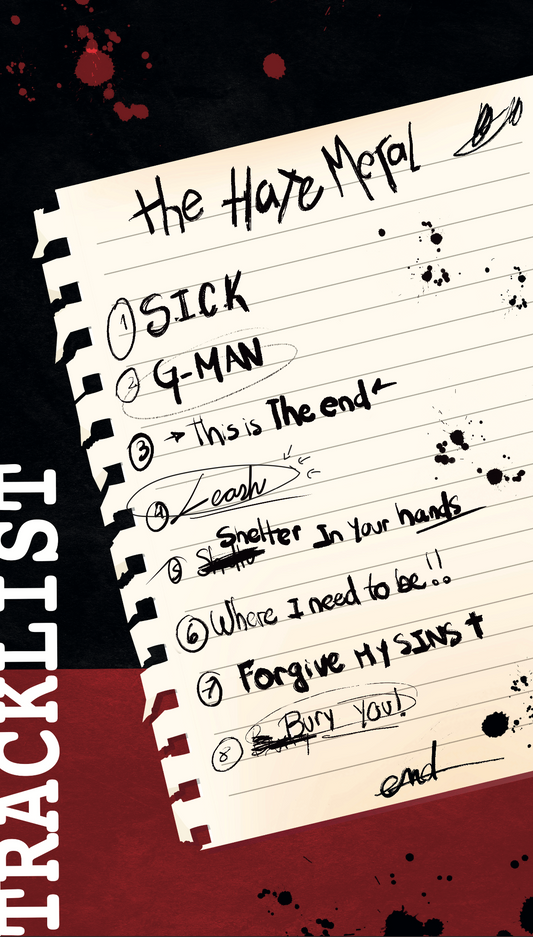 the Hate Metal
1 SICK
2 G-MAN
3 → This is The end ←
4 Leash
5 Shelter In Your hands
6 Where I need to be!!
7 Forgive MY SINS ✝
8 Bury You!
end
TRACKLIST